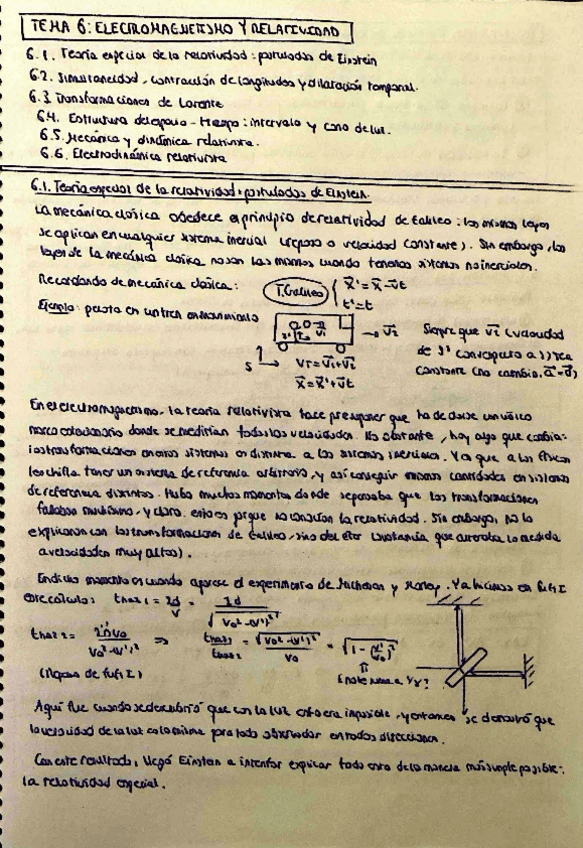 TEMA 6: ELECTROMAGNETISMO Y RELATIVIDAD
6.1. Teoría especial de la relatividad: postulados de Einstein
6.2. Simultaneidad, contracción de longitudes y dilatación temporal.
6.3 Transformaciones de Lorentz
6.4. Estructura del espacio-tiempo: intervalo y cono de luz.
6.5. Mecánica y dinámica relativista.
6.6. Electrodinámica relativista
6.1. Teoría especial de la relatividad: postulados de Einstein.
La mecánica clásica obedece el principio de relatividad de Galileo: las mismas leyes
se aplican en cualquier sistema inercial (reposo o velocidad constante). Sin embargo, las
leyes de la mecánica clásica no son las mismas cuando tenemos sistemas no inerciales.
Recordando de mecánica clásica: T. Galileo { x⃗' = x⃗ - v⃗t
t' = t
Ejemplo: pelota en un tren en movimiento
S' v⃗₁ → v⃗₂
Siempre que v⃗₂ (velocidad
de S' con respecto a S) sea
constante (no cambia, a⃗ = 0⃗)
S v⃗T = v⃗₁ + v⃗₂
x⃗ = x⃗' + v⃗t
En el electromagnetismo, la teoría relativista hace presuponer que ha de darse un único
marco donde se medirían todas las velocidades. No obstante, hay algo que cambia:
las transformaciones en otros sistemas es distinta a los sistemas inerciales. Ya que a los físicos
les chifla tener un sistema de referencia arbitrario, y así conseguir mismas cantidades en sistemas
de referencia distintos. Hubo muchos momentos donde se pensaba que las transformaciones
fallaban muchísimo, y claro, esto es porque no conocían la relatividad. Sin embargo, no lo
explicaron con las transformaciones de Galileo, sino del éter (sustancia que alteraba la medida
a velocidades muy altas).
En dicho momento es cuando aparece el experimento de Michelson y Morley. Ya hicimos en fufi I
este cálculo: t_haz 1 = 2d/v = 2d/√(v₀² - (v')²)
t_haz 2 = 2dv₀/(v₀² - (v')²) ⇒ t_haz 1/t_haz 2 = √(v₀² - (v')²)/v₀ = √(1 - (v'/v₀)²)
(Repaso de fufi I)
Aquí fue cuando se descubrió que con la luz esto era imposible, y entonces se demostró que
la velocidad de la luz es la misma para todo observador en todas direcciones.
Con este resultado, llegó Einstein a intentar explicar todo esto de la manera más simple posible:
la relatividad especial.